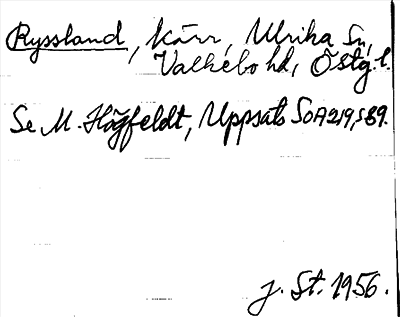 Ryssland, kärr, Ulrika Sn,
Valkebo hd, Östg. l.
Se M. Högfeldt, Uppsats SOA 219, s 89.
J. St. 1956.